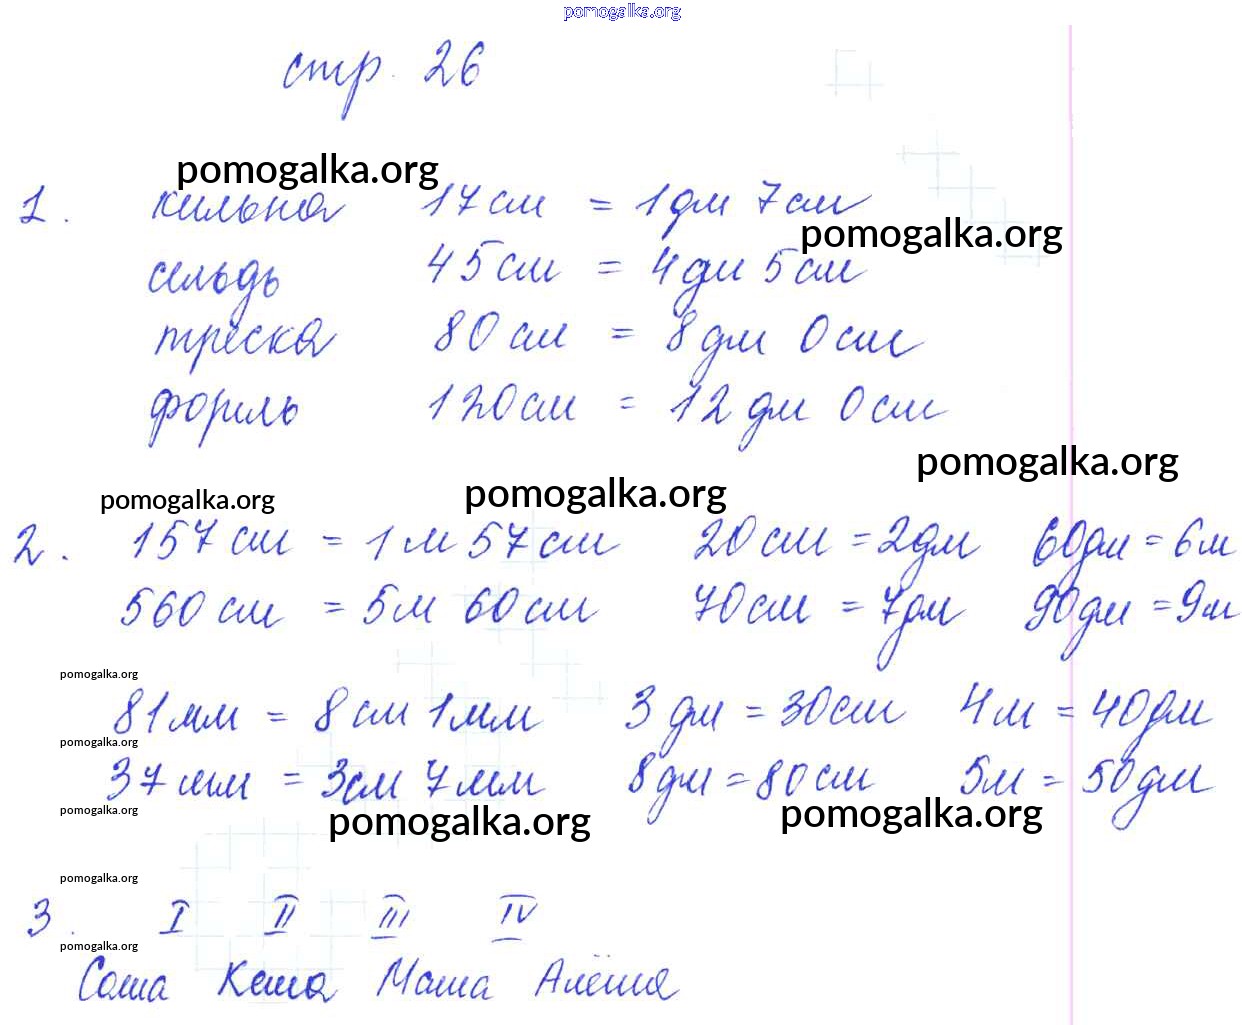 pomogalka.org
стр. 26
pomogalka.org
1. килька 17 см = 1 дм 7 см
pomogalka.org
сельдь 45 см = 4 дм 5 см
треска 80 см = 8 дм 0 см
форель 120 см = 12 дм 0 см
pomogalka.org
pomogalka.org pomogalka.org
2. 157 см = 1 м 57 см 20 см = 2 дм 60 дм = 6 м
560 см = 5 м 60 см 70 см = 7 дм 90 дм = 9 м
pomogalka.org
81 мм = 8 см 1 мм 3 дм = 30 см 4 м = 40 дм
pomogalka.org
37 мм = 3 см 7 мм 8 дм = 80 см 5 м = 50 дм
pomogalka.org
pomogalka.org pomogalka.org
pomogalka.org
3. I II III IV
pomogalka.org
Саша Кеша Маша Алёша